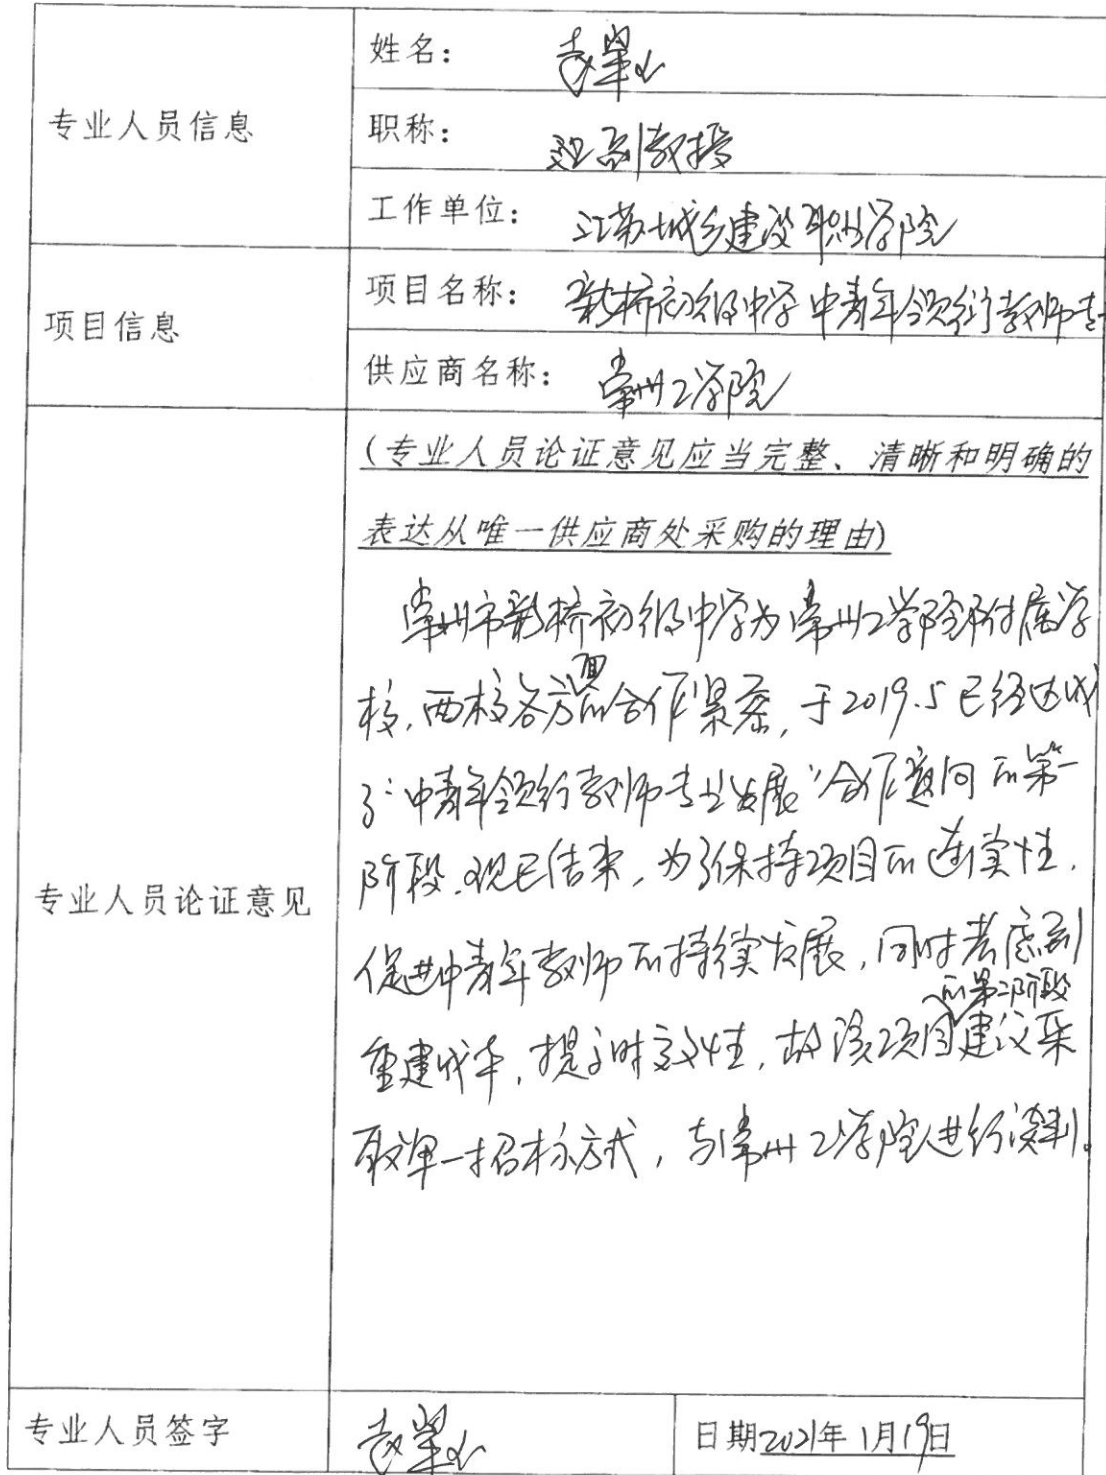 专业人员信息
姓名：
职称：副教授
工作单位：江苏城乡建设职业学院
项目信息
项目名称：新桥初级中学中青年领衔教师专
供应商名称：常州工学院
专业人员论证意见
(专业人员论证意见应当完整、清晰和明确的
表达从唯一供应商处采购的理由)
常州市新桥初级中学为常州工学院附属学
校，两校各方面的合作紧密，于2019.5已经达成
了“中青年领衔教师专业发展”合作意向的第一
阶段，现已结束，为了保持项目的连续性，
促进中青年教师的持续发展，同时考虑到
重建成本，提高时效性，故该项目的第二阶段建议采
取单一招标方式，与常州工学院进行谈判。
专业人员签字
日期2021年1月19日